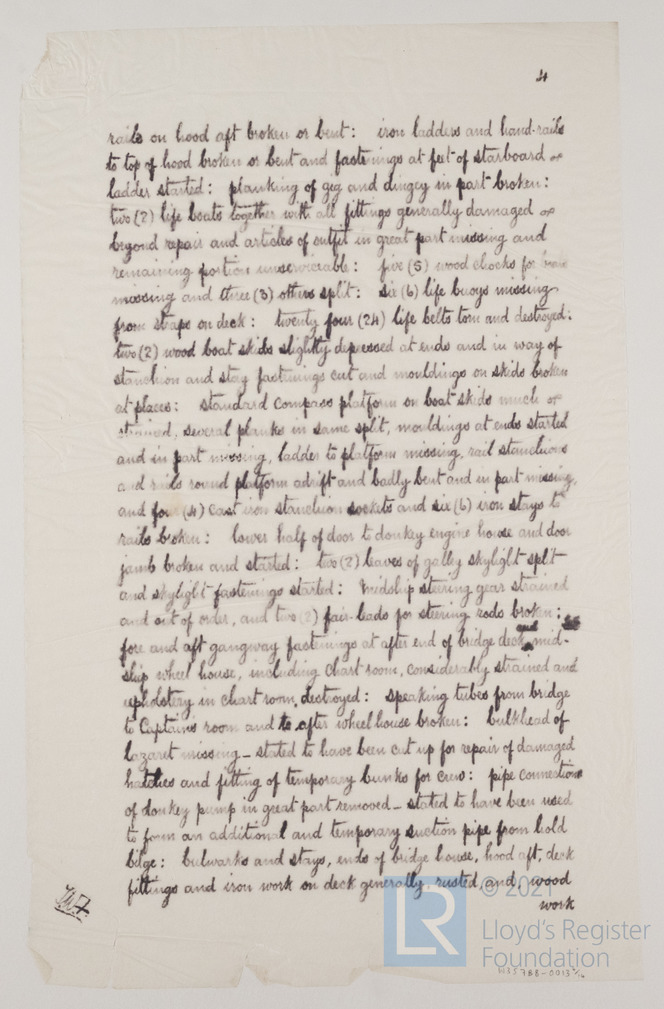 4
rails on hood aft broken or bent: iron ladders and hand-rails
to top of hood broken or bent and fastenings at feet of starboard
ladder started: planking of gig and dingey in part broken:
two (2) life boats together with all fittings generally damaged
beyond repair and articles of outfit in great part missing and
remaining portion unserviceable: five (5) wood chocks for
missing and three (3) others split: six (6) life buoys missing
from straps on deck: twenty four (24) life belts torn and destroyed:
two (2) wood boat skids slightly depressed at ends and in way of
stanchion and stay fastenings cut and mouldings on skids broken
at places: standard compass platform on boat skids much
strained, several planks in same split, mouldings at ends started
and in part missing, ladder to platform missing, rail stanchions
and rails round platform adrift and badly bent and in part missing,
and four (4) cast iron stanchion sockets and six (6) iron stays to
rails broken: lower half of door to donkey engine house and door
jamb broken and started: two (2) leaves of galley skylight split
and skylight fastenings started: Midship steering gear strained
and out of order, and two (2) fair-leads for steering rods broken:
fore and aft gangway fastenings at after end of bridge deck and mid-
ship wheel house, including chart room, considerably strained and
upholstery in chart room destroyed: speaking tubes from bridge
to Captain's room and to after wheel house broken: bulkhead of
lazaret missing - stated to have been cut up for repair of damaged
hatches and fitting of temporary bunks for crew: pipe connections
of donkey pump in great part removed - stated to have been used
to form an additional and temporary suction pipe from hold
bilge: bulwarks and stays, ends of bridge house, hood aft, deck
fittings and iron work on deck generally rusted, and, wood
work
© 2021
LR
Lloyd's Register
Foundation